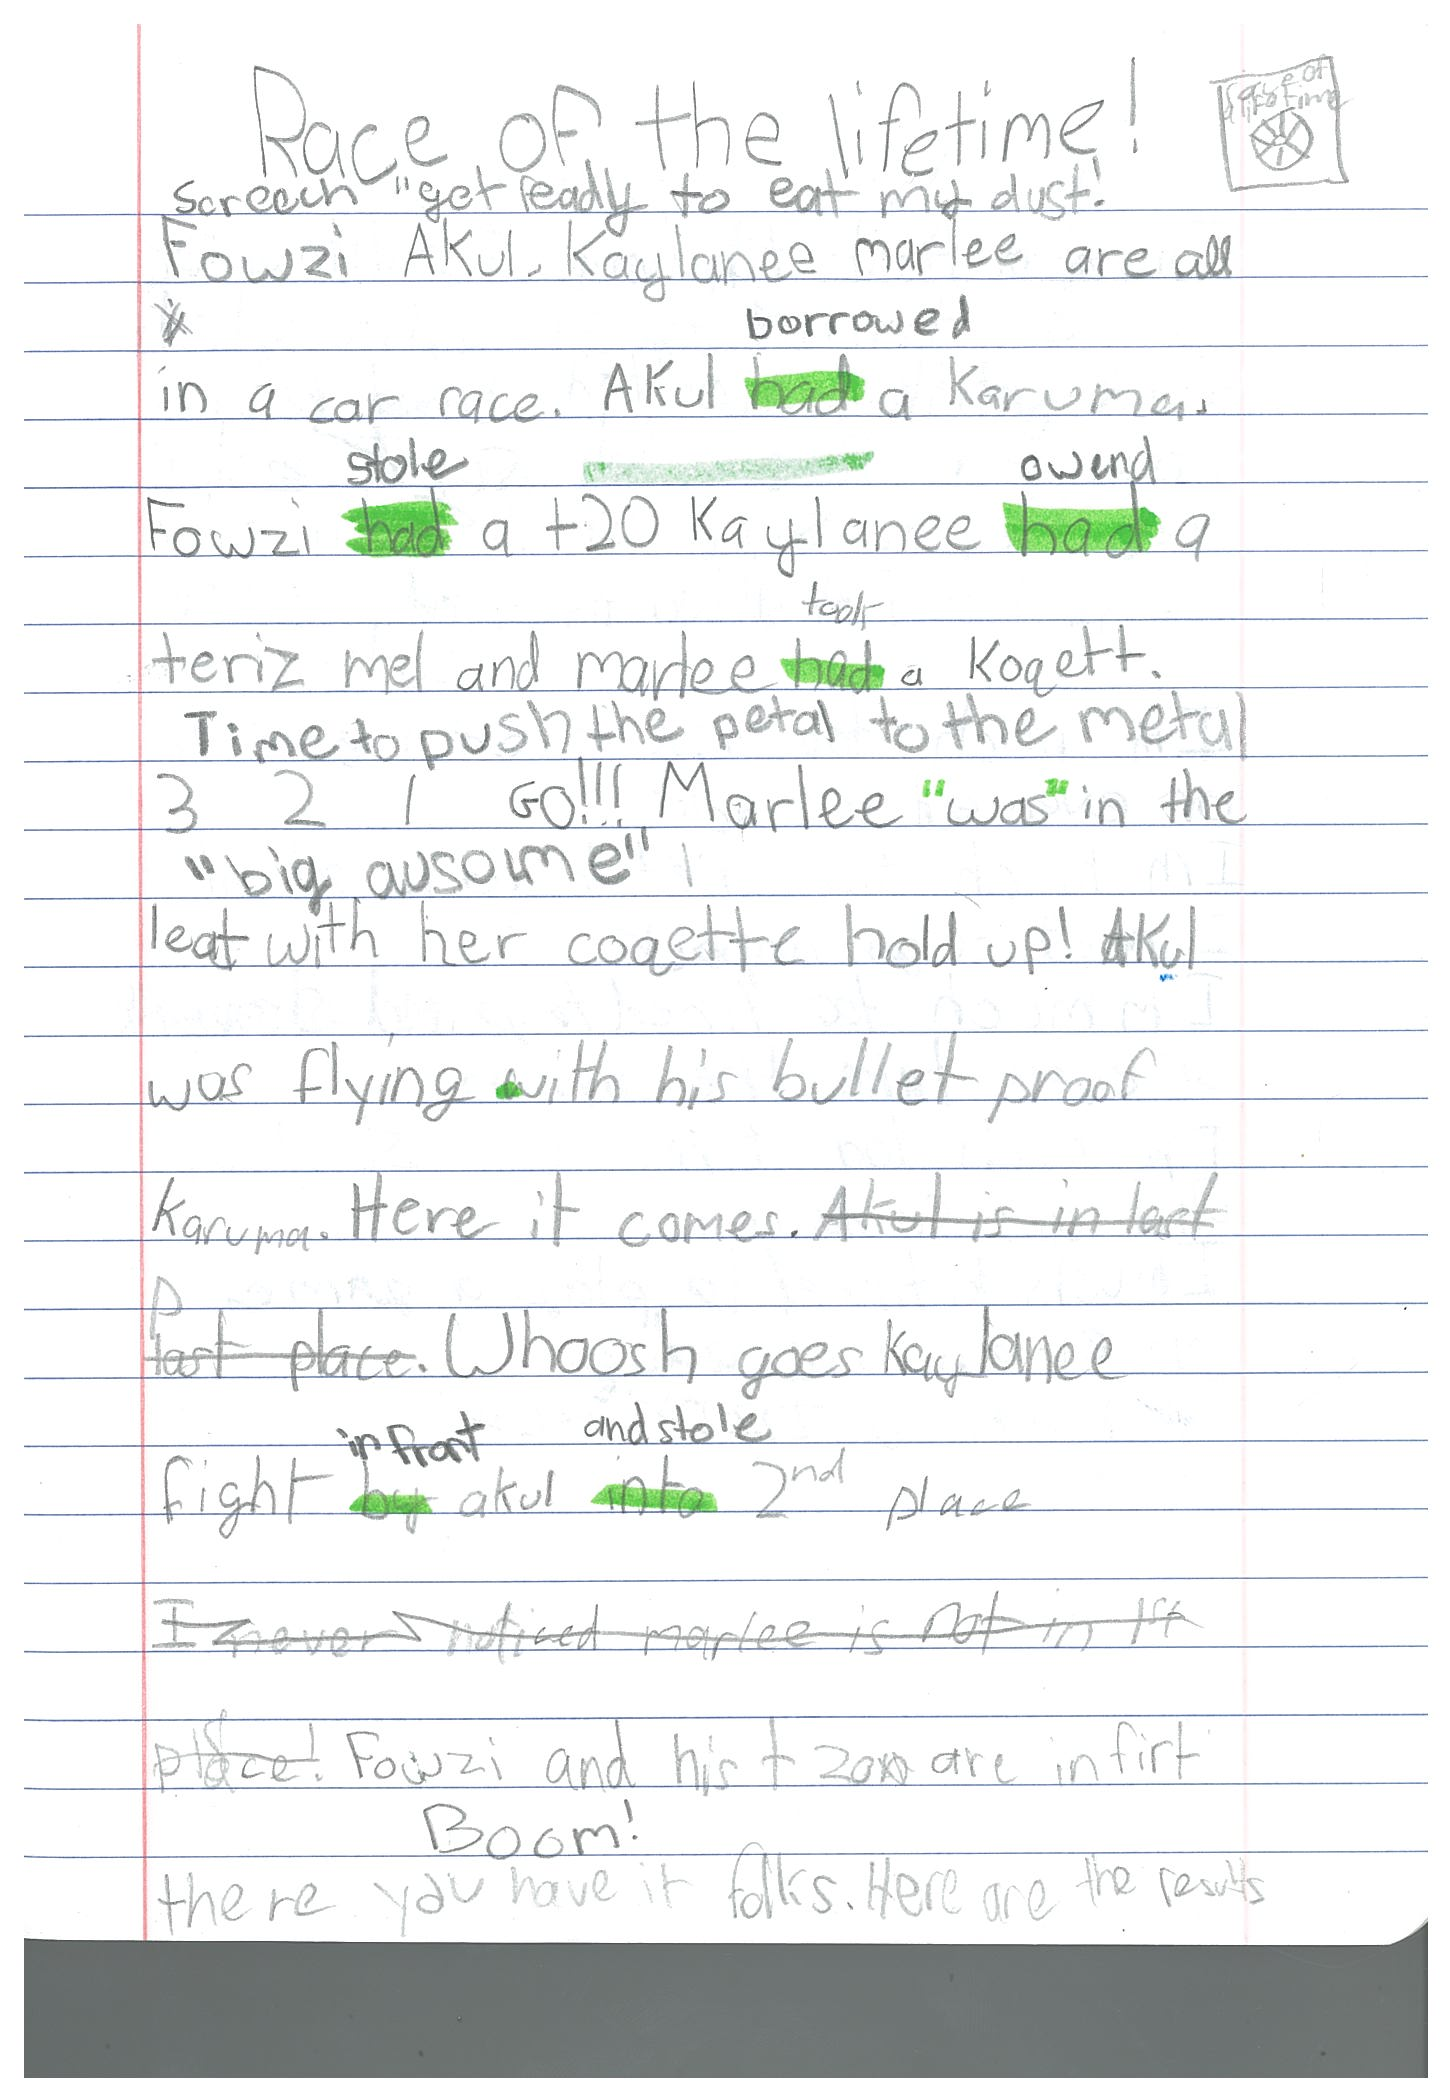 Race of the lifetime!
Race of
a lifetime
Screech "get ready to eat my dust!
Fowzi Akul, Kaylanee marlee are all
borrowed
in a car race. Akul had a Karuma.
stole owend
Fowzi had a t20 Kaylanee had a
took
teriz mel and marlee had a Koqett.
Time to push the petal to the metal
3 2 1 GO!!! Marlee "was" in the
"big ausome"
leat with her coqette hold up! Akul
was flying with his bullet proof
Karuma. Here it comes. Akul is in last
last place. Whoosh goes Kaylanee
in front and stole
fight by akul into 2nd place
I never noticed marlee is not in 1st
place! Fowzi and his t 20 are in firt
Boom!
there you have it folks. Here are the results